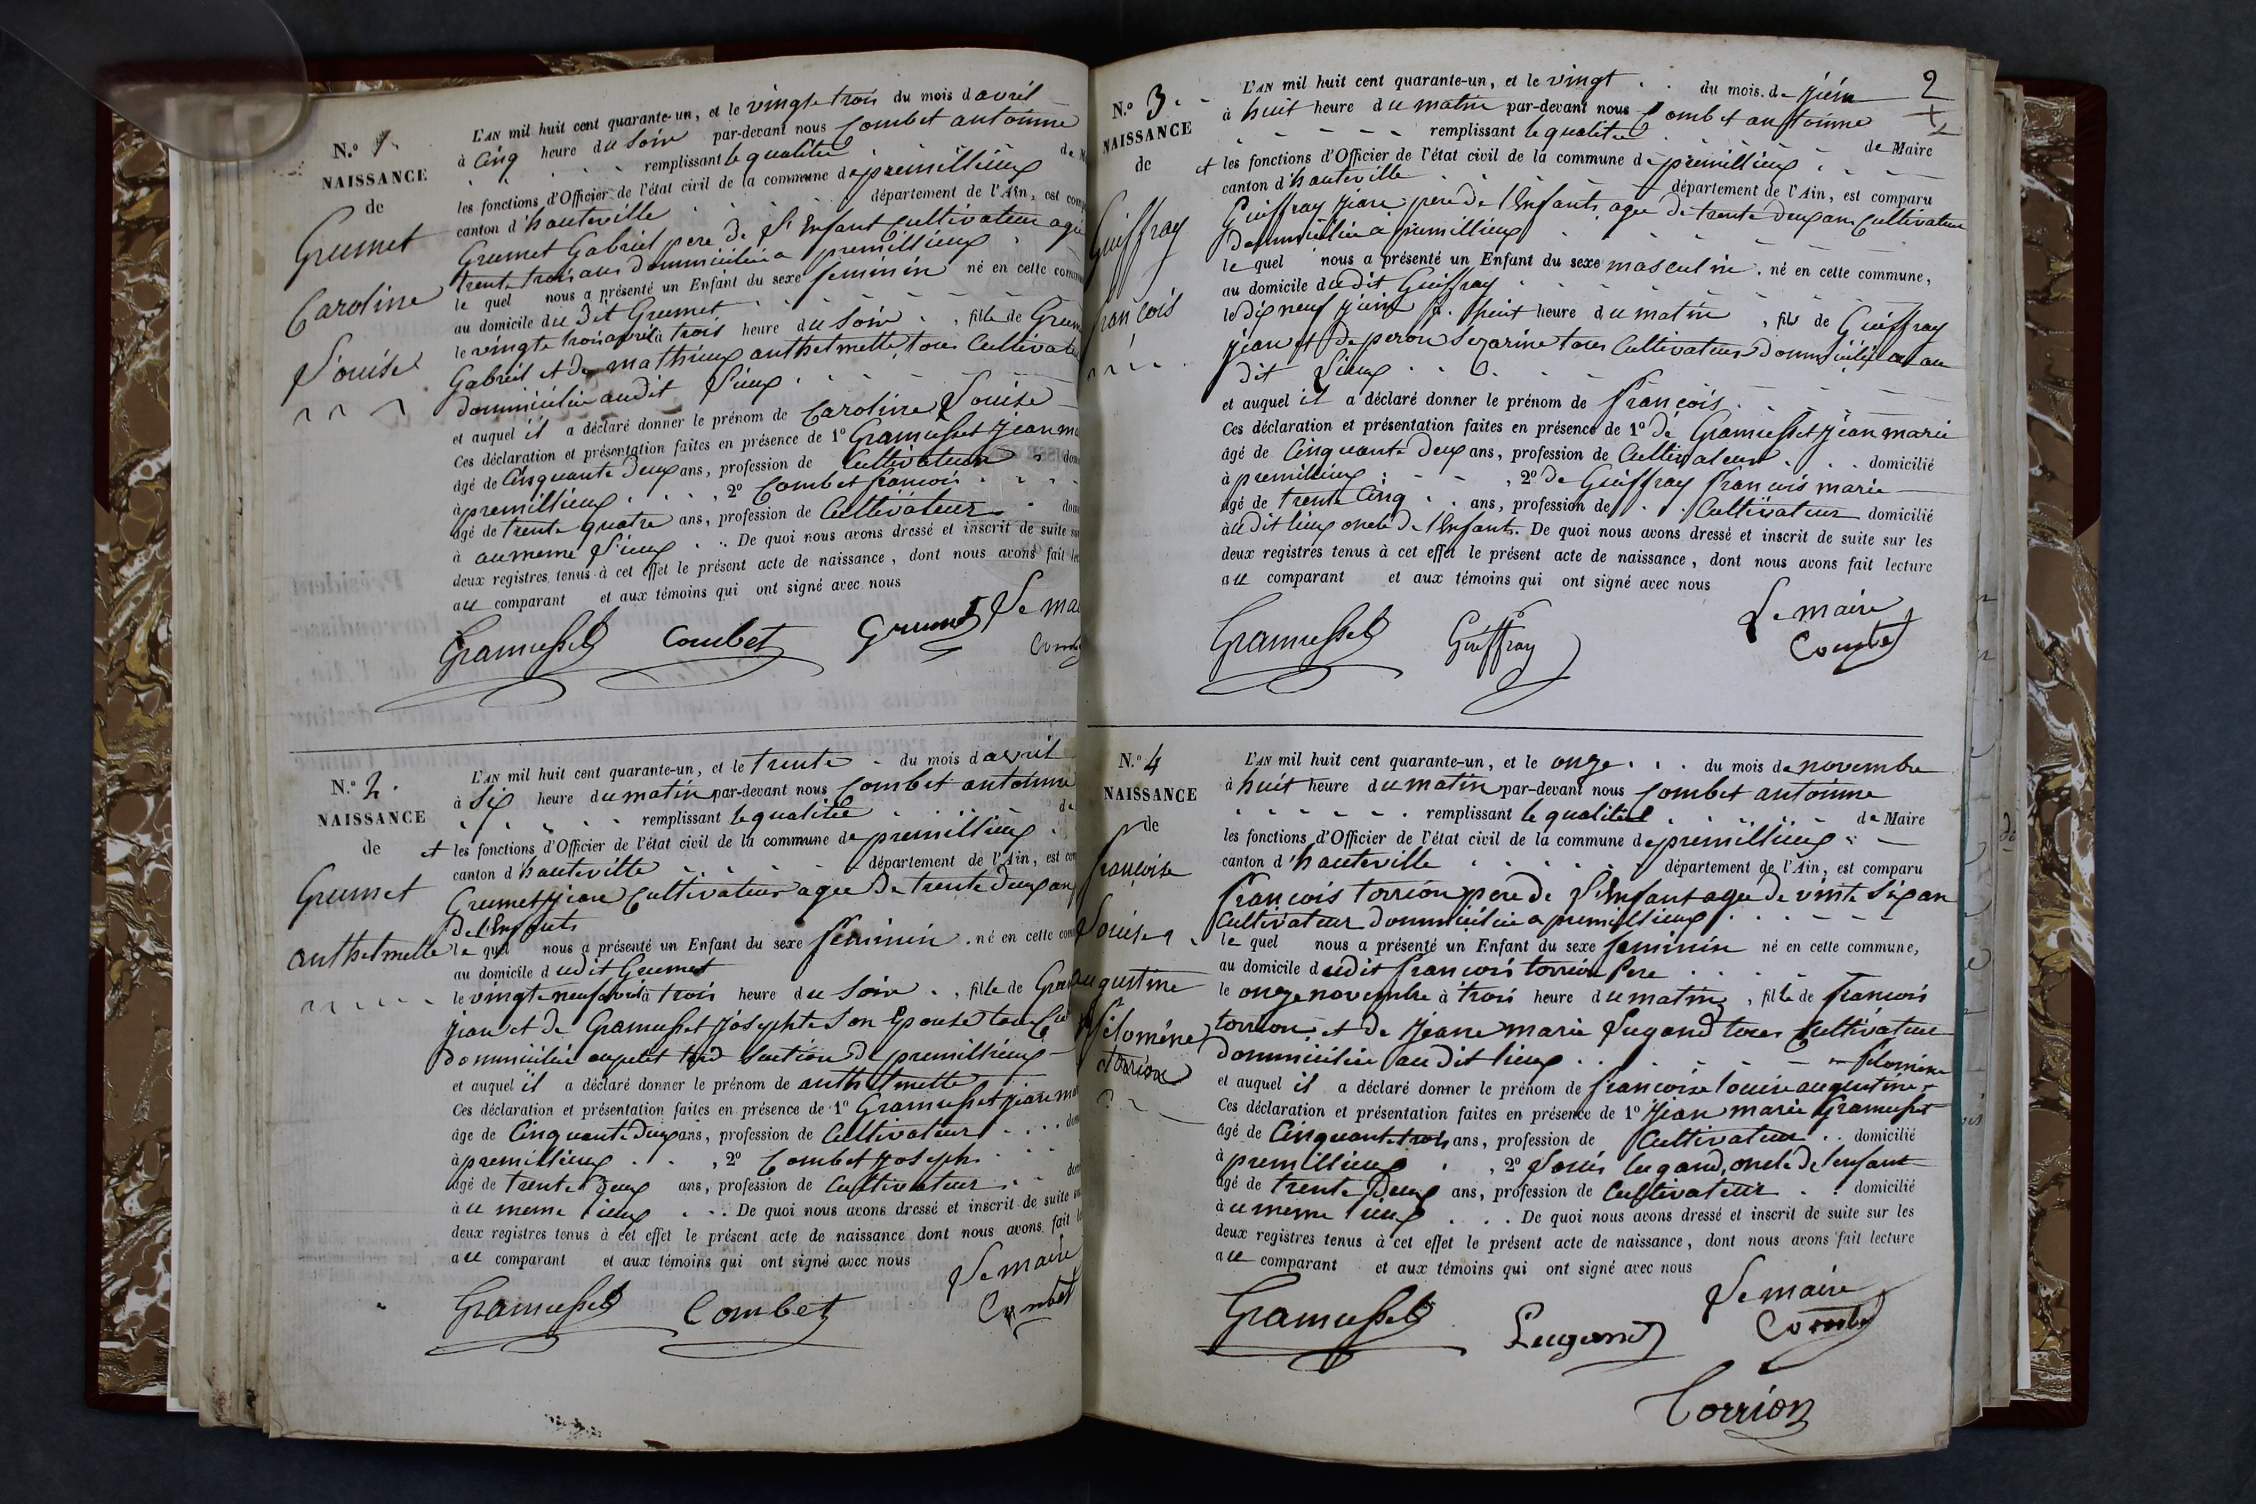 N.º 1.
NAISSANCE
de
Grumet
Caroline
Louise
L'AN mil huit cent quarante-un, et le vingt trois du mois d avril
à cinq heure du soir par-devant nous Combet antoinne
remplissant la qualitée de M
les fonctions d'Officier de l'état civil de la commune de premillieux
canton d'hauteville département de l'Ain, est comp
Grumet Gabriel pere de L'Enfant Cultivateur agé
trente trois ans dommicilié a premillieux
le quel nous a présenté un Enfant du sexe feminin né en cette commu
au domicile du Dit Grumet
le vingte trois avril à trois heure du soir, fille de Grum
Gabriel et de mathieux anthelmette, tous Cultivate
dommicilié audit Lieux
et auquel il a déclaré donner le prénom de Caroline Louise
Ces déclaration et présentation faites en présence de 1º Gramusset jean ma
âgé de Cinquante deux ans, profession de Cultivateur dom
à premillieux, 2º Combet francois
âgé de trente quatre ans, profession de Cultivateur dom
à au meme Lieux. De quoi nous avons dressé et inscrit de suite su
deux registres tenus à cet effet le présent acte de naissance, dont nous avons fait lec
au comparant et aux témoins qui ont signé avec nous
Gramusset Combet Grumet Le mai
Comb
N.º 2.
NAISSANCE
de
Grumet
anthelmette
L'AN mil huit cent quarante-un, et le trente du mois d avril
à six heure du matin par-devant nous Combet antoinne
remplissant la qualitée de
et les fonctions d'Officier de l'état civil de la commune de premillieux
canton d'hauteville département de l'Ain, est com
Grumet jean Cultivateur agee De trente deux an
De l'Enfants
le quel nous a présenté un Enfant du sexe feminin. né en cette com
au domicile d udit Grumet
le vingte neuf avril à trois heure du soir, fille de Grum
jean et de Gramusset josephte son Epouse tous Cul
dommicilié au petit section de premillieux
et auquel il a déclaré donner le prénom de anthelmette
Ces déclaration et présentation faites en présence de 1º Gramusset jean ma
âge de Cinquante deux ans, profession de Cultivateur dom
à premillieux, 2º Combet joseph
âgé de trente deux ans, profession de Cultivateur dom
à u meme lieux. De quoi nous avons dressé et inscrit de suite su
deux registres tenus à cet effet le présent acte de naissance dont nous avons fait le
au comparant et aux témoins qui ont signé avec nous
Gramusset Combet Le maire
Combet
2
N.º 3.
NAISSANCE
de
Guiffray
francois
L'AN mil huit cent quarante-un, et le vingt du mois de juin
à huit heure du matin par-devant nous Combet antoinne
remplissant la qualitée de Maire
et les fonctions d'Officier de l'état civil de la commune de premillieux
canton d'hauteville département de l'Ain, est comparu
Guiffray jean pere de l'Enfants agee de trente deux ans Cultivateur
dommicilié a premillieux
le quel nous a présenté un Enfant du sexe masculin. né en cette commune,
au domicile dudit Guiffray
le dix neuf juin à huit heure du matin, fils de Guiffray
jean et de peron Sezarine tous Cultivateurs dommicilié a au
dit Lieux
et auquel il a déclaré donner le prénom de francois
Ces déclaration et présentation faites en présence de 1º de Gramusset jean marie
âgé de Cinquante deux ans, profession de Cultivateur domicilié
à premillieux, 2º de Guiffray francois marie
âgé de trente Cinq ans, profession de Cultivateur domicilié
à udit lieux oncle de l'Enfant. De quoi nous avons dressé et inscrit de suite sur les
deux registres tenus à cet effet le présent acte de naissance, dont nous avons fait lecture
au comparant et aux témoins qui ont signé avec nous
Gramusset Guiffray Le maire
Combet
N.º 4
NAISSANCE
de
francoise
Louise
augustine
filomène
torrion
L'AN mil huit cent quarante-un, et le onze du mois de novembre
à huit heure du matin par-devant nous Combet antoinne
remplissant la qualitée de Maire
les fonctions d'Officier de l'état civil de la commune de premillieux
canton d'hauteville département de l'Ain, est comparu
francois torrion pere de L'Enfant agee de vinte six an
Cultivateur dommicilié a premillieux
le quel nous a présenté un Enfant du sexe feminin né en cette commune,
au domicile d udit francois torrion Pere
le onze novembre à trois heure du matin, fille de francois
torrion et de jeane marie Lugand tous Cultivateur
dommicilié au dit lieux
filomène
et auquel il a déclaré donner le prénom de francoise louise augustine
Ces déclaration et présentation faites en présence de 1º jean marie Gramusset
âgé de Cinquante trois ans, profession de Cultivateur domicilié
à premillieux, 2º Louis lugand, oncle de l'enfant
âgé de trente Deux ans, profession de Cultivateur domicilié
à u meme lieux. De quoi nous avons dressé et inscrit de suite sur les
deux registres tenus à cet effet le présent acte de naissance, dont nous avons fait lecture
au comparant et aux témoins qui ont signé avec nous
Gramusset Lugand Le maire
Combet
Torrion